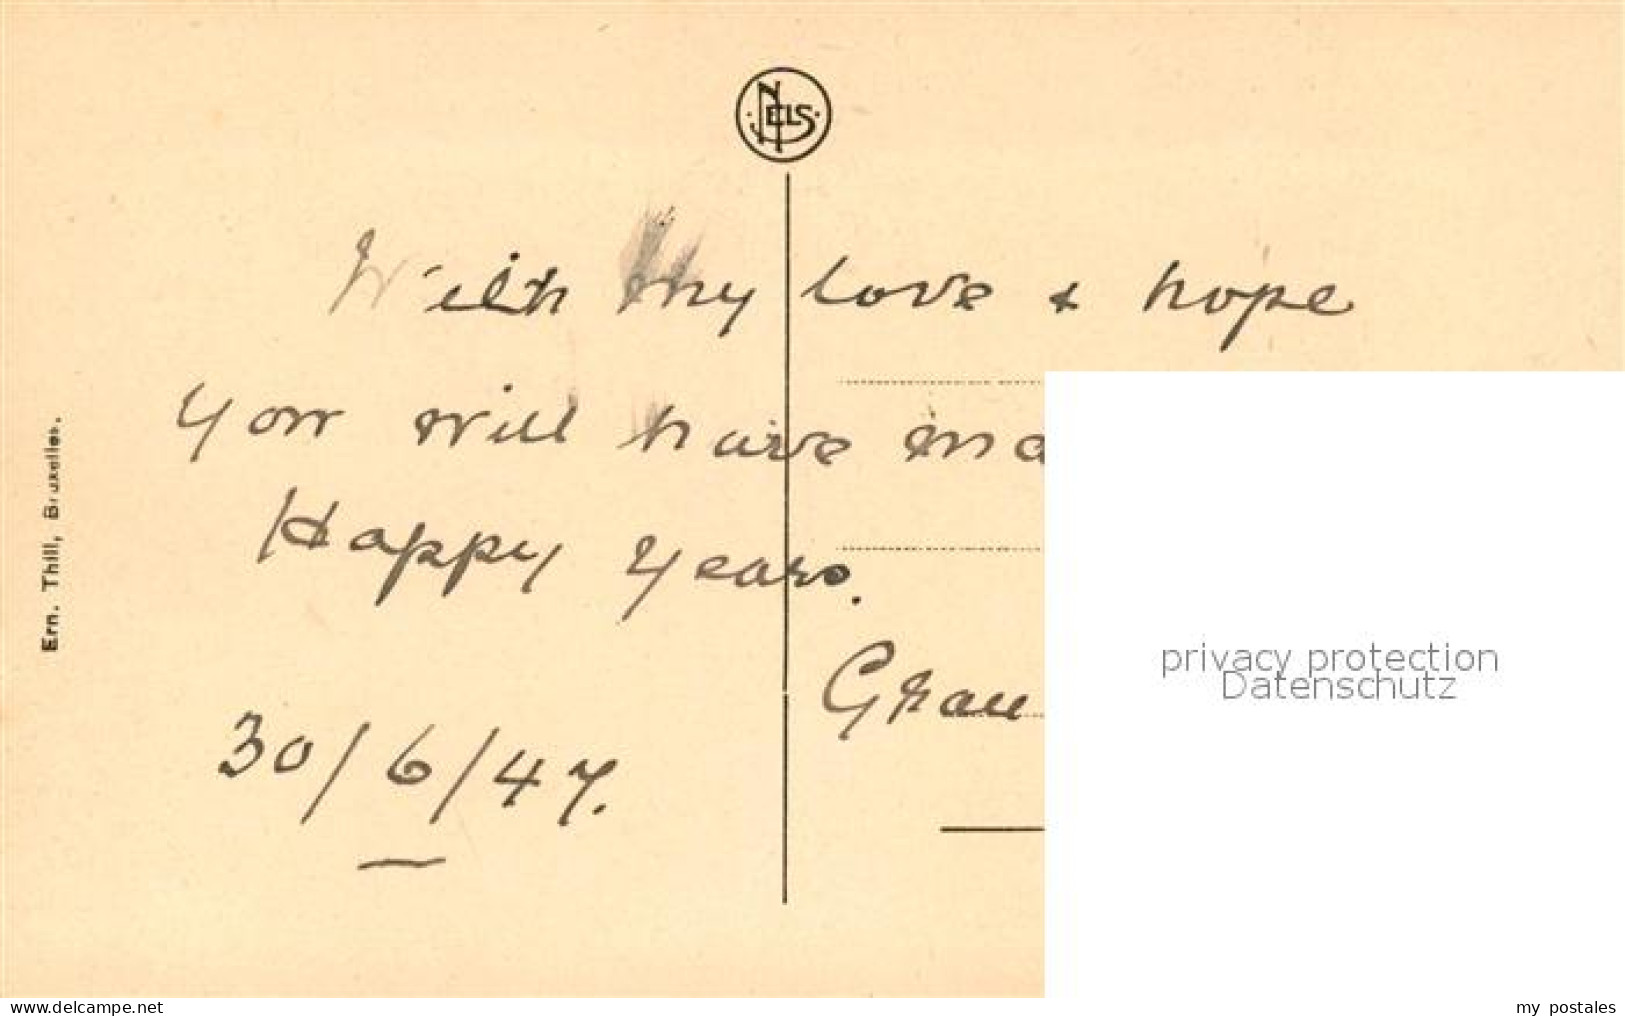 NELS
With my love & hope
you will have ma
Happy years.
Gran
30/6/47.
Ern. Thill, Bruxelles.
privacy protection
Datenschutz
www.delcampe.net
my postales